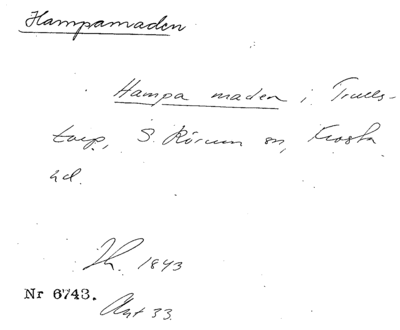 Hampamaden
Hampa maden i Trulls-
torp, S. Rörum sn, Frosta
hd.
1843
Nr 6743.
33.